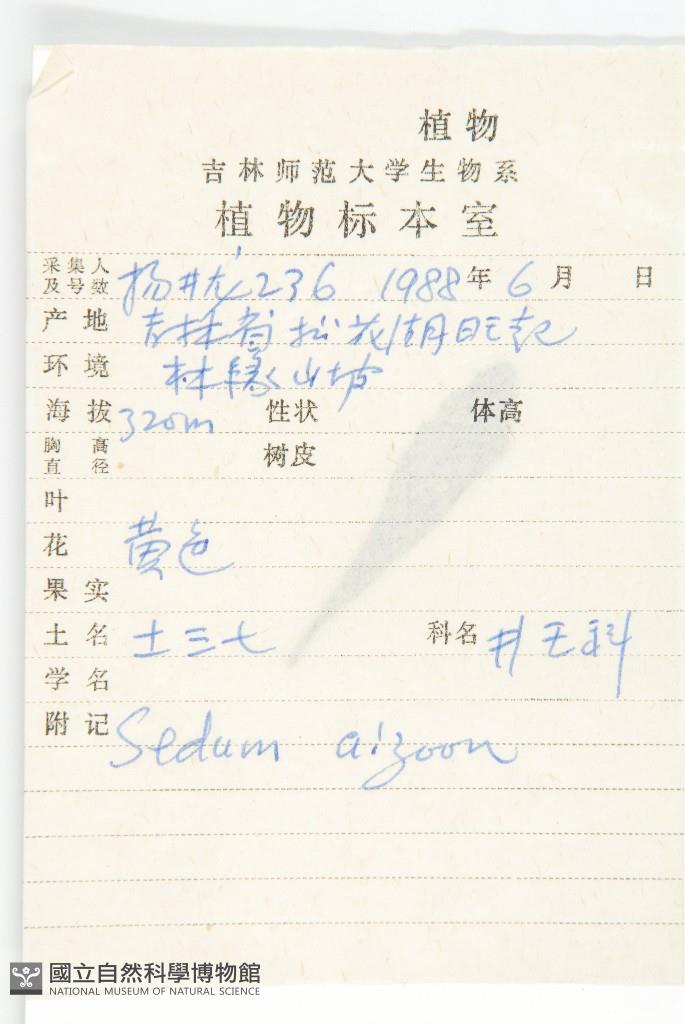 植物
吉林师范大学生物系
植物标本室
采集人及号数 杨井龙236 1988年6月 日
产地 吉林省松花湖旺起
环境 林缘山坡
海拔 320m 性状 体高
胸高直径 树皮
叶
花 黄色
果实
土名 土三七 科名 井天科
学名
附记 Sedum aizoon
國立自然科學博物館
NATIONAL MUSEUM OF NATURAL SCIENCE